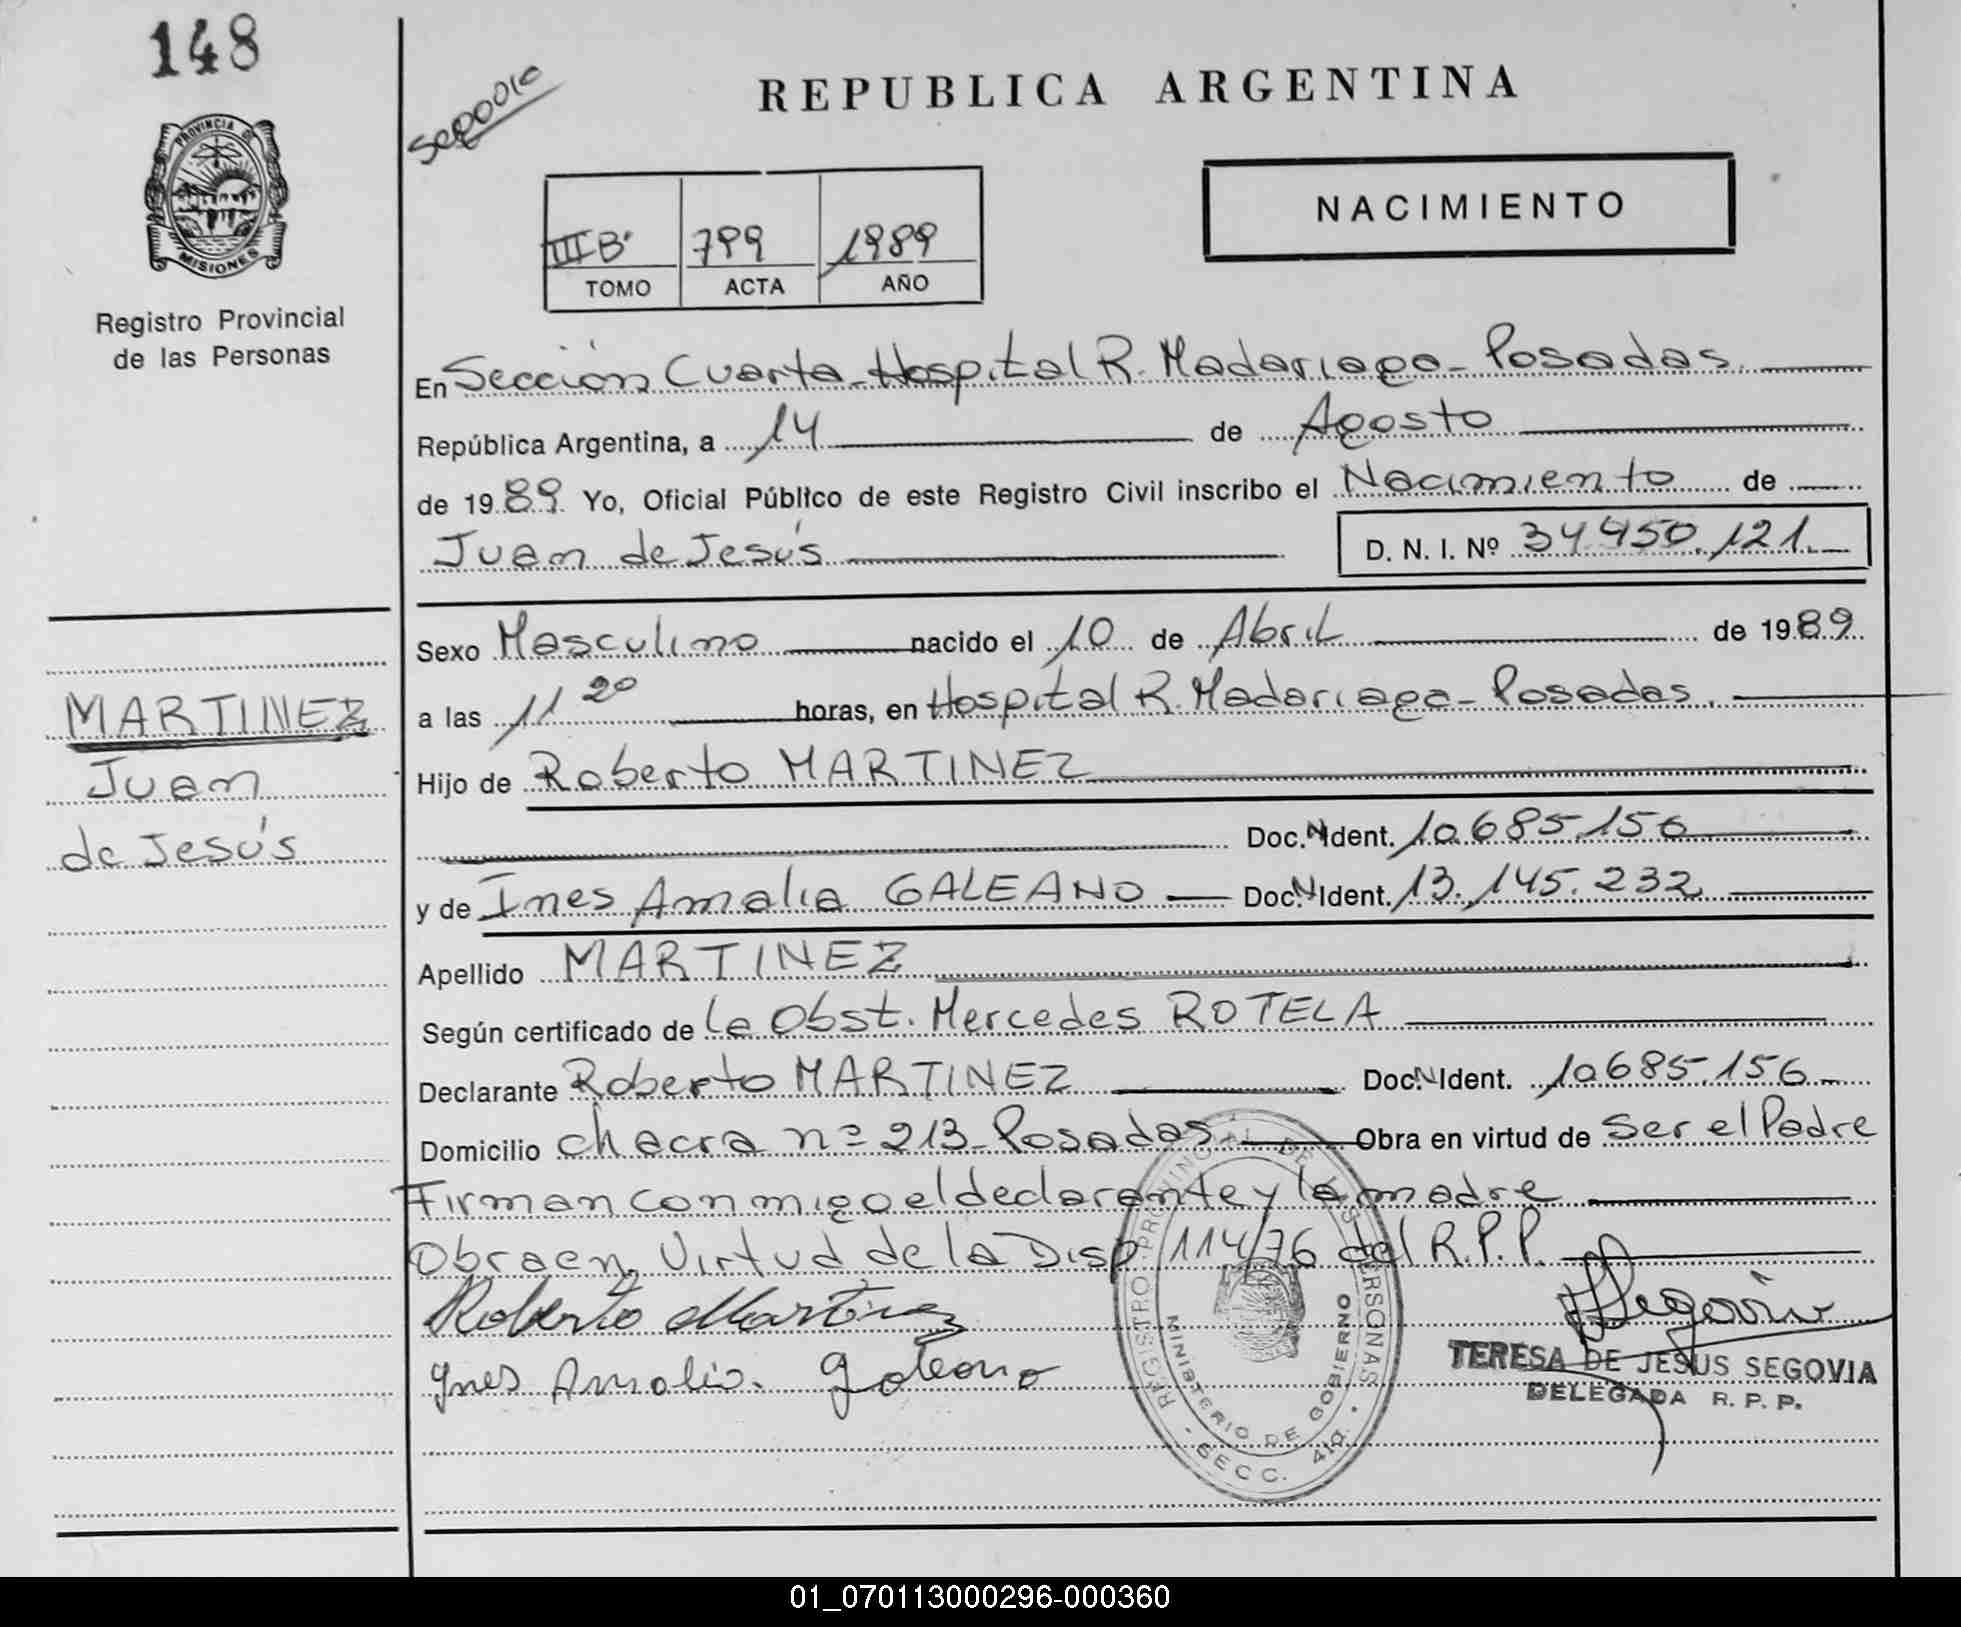 148
PROVINCIA DE
MISIONES
Registro Provincial
de las Personas
REPUBLICA ARGENTINA
NACIMIENTO
III Bº 799 1989
TOMO ACTA AÑO
En Sección Cuarta-Hospital R. Madariaga-Posadas.
República Argentina, a 14 de Agosto
de 1989 Yo, Oficial Público de este Registro Civil inscribo el Nacimiento de
Juan de Jesús D. N. I. Nº 34.450.121.
Sexo Masculino nacido el 10 de Abril de 1989
MARTINEZ
Juan
de Jesús
a las 11 20 horas, en Hospital R. Madariaga-Posadas.
Hijo de Roberto MARTINEZ
Doc. N Ident. 10.685.156
y de Ines Amalia GALEANO Doc. N Ident. 13.145.232
Apellido MARTINEZ
Según certificado de la Obst. Mercedes ROTELA
Declarante Roberto MARTINEZ Doc. N Ident. 10.685.156
Domicilio chacra nº 213-Posadas Obra en virtud de Ser el Padre
Firman conmigo el declarante y la madre
Obra en Virtud de la Disp. 114/76 del R.P.P.
Roberto Martinez
Ynes Amalia Galeano
Segovia
TERESA DE JESUS SEGOVIA
DELEGADA R. P. P.
REGISTRO PROVINCIAL DE LAS PERSONAS
MINISTERIO DE GOBIERNO
SECC. 4ta.
01_070113000296-000360